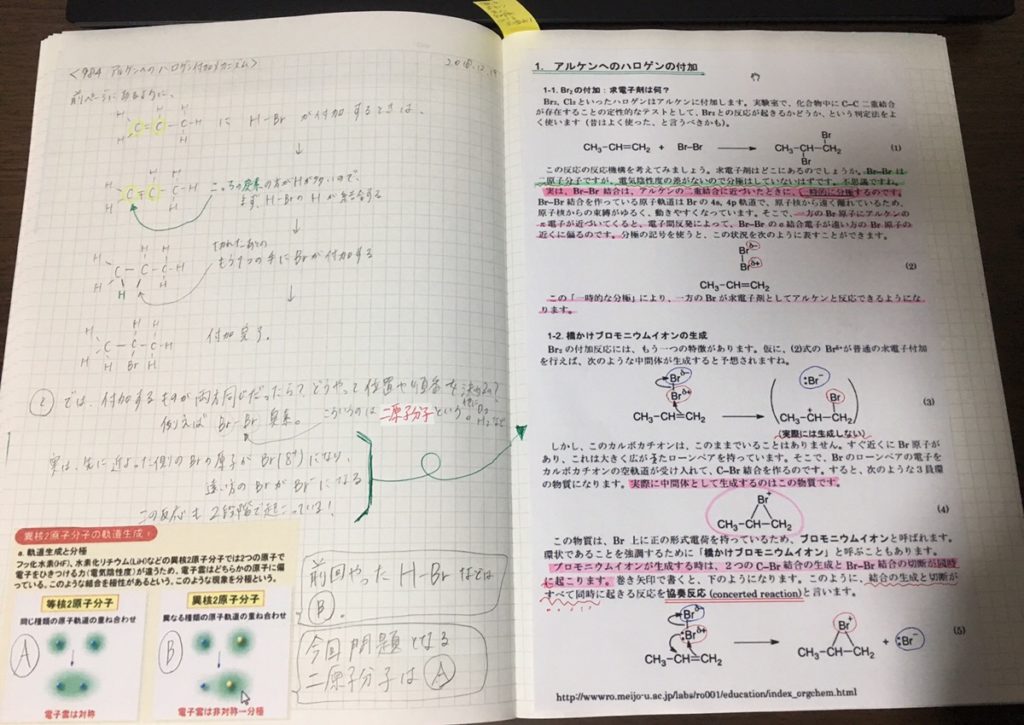 <984 アルケンへのハロゲン付加メカニズム>
2018.12.19
前ページにあるように、
H H H
C=C-C-H
H H
に H-Br が付加するときは、
↓
C=C-C-H
こっちの炭素の方がHが多いので、
まず、H-Br の H が結合する
H H H
H-C-C-C-H
H H
切れたあとの
もう1つの手に Br が付加する
↓
H H H
H-C-C-C-H
H Br H
付加完了。
② では、付加するものが両方同じだったら?どうやって位置や順番を決める?
例えば Br-Br 臭素。
こういうのは 二原子分子 という。
実は、先に近よった側の Br の原子が Br(δ+) になり、
遠い方の Br が Br⁻ になる
この反応も 2段階で起こっている!
異核2原子分子の軌道生成
a. 軌道生成と分極
フッ化水素(HF)、水素化リチウム(LiH)などの異核2原子分子では2つの原子で
電子をひきつける力(電気陰性度)が違うため、電子雲はどちらかの原子に偏
っている。このような結合を極性があるという。このような現象を分極という。
等核2原子分子
同じ種類の原子軌道の重ね合わせ
A
電子雲は対称
異核2原子分子
異なる種類の原子軌道の重ね合わせ
B
電子雲は非対称―分極
前回やった H-Br などは
B.
今回問題となる
二原子分子は A
1. アルケンへのハロゲンの付加
1-1. Br₂ の付加:求電子剤は何?
Br₂, Cl₂ といったハロゲンはアルケンに付加します。実験室で、化合物中に C–C 二重結合
が存在することの定性的なテストとして、Br₂ との反応が起きるかどうか、という判定法をよ
く使います(昔はよく使った、と言うべきかも)。
CH₃–CH=CH₂ + Br–Br → CH₃–CH–CH₂ (1)
Br
Br
この反応の反応機構を考えてみましょう。求電子剤はどこにあるのでしょうか。Br–Br は
二原子分子ですが、電気陰性度の差がないので分極はしていないはずです。不思議ですね。
実は、Br–Br 結合は、アルケンの二重結合に近づいたときに、一時的に分極するのです。
Br–Br 結合を作っている原子軌道は Br の 4s, 4p 軌道で、原子核から遠く離れているため、
原子核からの束縛がゆるく、動きやすくなっています。そこで、一方の Br 原子にアルケンの
π 電子が近づいてくると、電子間反発によって、Br–Br の σ 結合電子が遠い方の Br 原子の
近くに偏るのです。分極の記号を使うと、この状況を次のように表すことができます。
Br δ–
Br δ+
(2)
CH₃–CH=CH₂
この「一時的な分極」により、一方の Br が求電子剤としてアルケンと反応できるようにな
ります。
1-2. 橋かけブロモニウムイオンの生成
Br₂ の付加反応には、もう一つの特徴があります。仮に、(2)式の Br δ+ が普通の求電子付加
を行えば、次のような中間体が生成すると予想されますね。
Br δ–
Br δ+
CH₃–CH=CH₂
→
Br⁻
Br
CH₃–CH–CH₂
+
(3)
(実際には生成しない)
しかし、このカルボカチオンは、このままでいることはありません。すぐ近くに Br 原子が
あり、これは大きく広がったローンペアを持っています。そこで、Br のローンペアの電子を
カルボカチオンの空軌道が受け入れて、C–Br 結合を作るのです。すると、次のような 3 員環
の物質になります。実際に中間体として生成するのはこの物質です。
Br⁺
CH₃–CH–CH₂
(4)
この物質は、Br 上に正の形式電荷を持っているため、ブロモニウムイオンと呼ばれます。
環状であることを強調するために「橋かけブロモニウムイオン」と呼ぶこともあります。
ブロモニウムイオンが生成する時は、2 つの C–Br 結合の生成と Br–Br 結合の切断が同時
に起こります。巻き矢印で書くと、下のようになります。このように、結合の生成と切断が
すべて同時に起きる反応を協奏反応 (concerted reaction) と言います。
Br δ–
:Br δ+
CH₃–CH=CH₂
→
Br⁺
CH₃–CH–CH₂
+ :Br⁻
(5)
http://wwwro.meijo-u.ac.jp/labs/ro001/education/index_orgchem.html